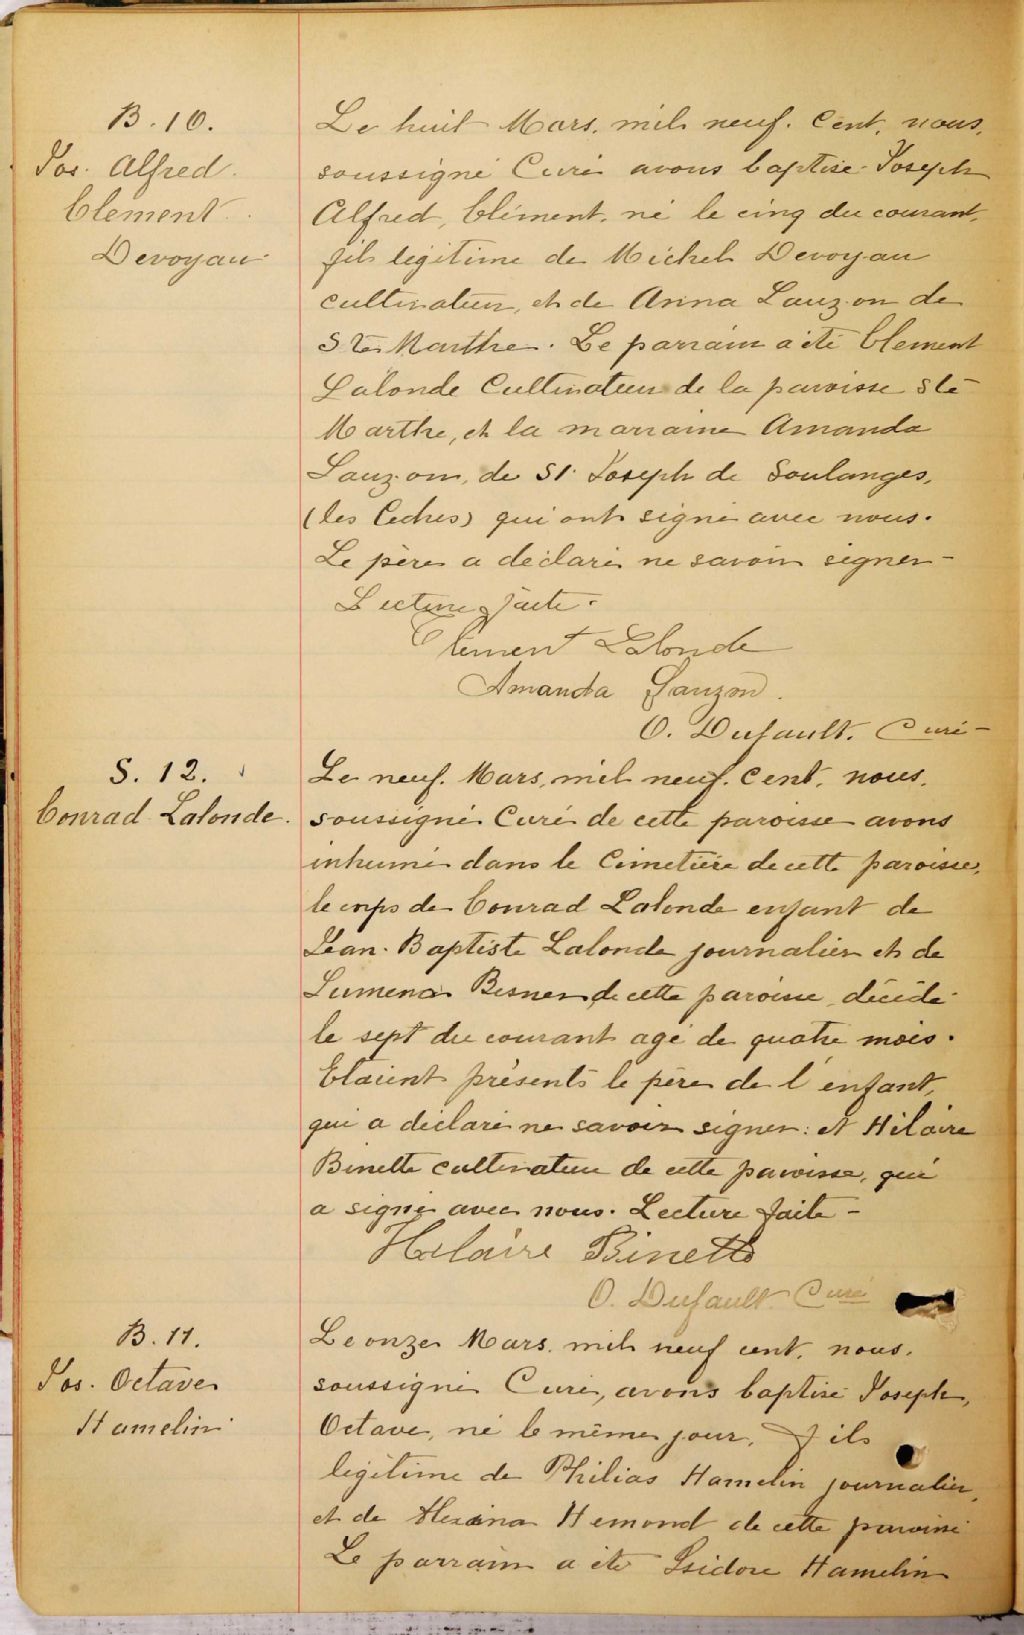 B. 10.
Jos. Alfred
Clement
Devoyau
Le huit Mars, mil neuf. Cent, nous,
soussigné Curé avons baptisé Joseph
Alfred, Clément, né le cinq du courant,
fils légitime de Michel Devoyau
cultivateur, et de Anna Lauzon de
Ste Marthe. Le parrain a été Clement
Lalonde Cultivateur de la paroisse Ste
Marthe, et la marraine Amanda
Lauzon, de St Joseph de Soulanges,
(les Cedres) qui ont signé avec nous.
Le père a déclaré ne savoir signer -
Lecture faite.
Clement Lalonde
Amanda Lauzon.
O. Dufault. Curé -
S. 12.
Conrad Lalonde.
Le neuf. Mars, mil neuf. Cent, nous,
soussigné Curé de cette paroisse avons
inhumé dans le Cimetière de cette paroisse,
le corps de Conrad Lalonde enfant de
Jean-Baptiste Lalonde journalier et de
Lumena Besner de cette paroisse, décédé
le sept du courant agé de quatre mois.
Etaient présents le père de l'enfant,
qui a déclaré ne savoir signer: et Hilaire
Binette cultivateur de cette paroisse, qui
a signé avec nous. Lecture faite -
Hilaire Binette
O. Dufault Curé
B. 11.
Jos. Octave
Hamelin
Le onze Mars, mil neuf cent, nous,
soussigné Curé, avons baptisé Joseph,
Octave, né le même jour, fils
légitime de Philias Hamelin journalier,
et de Alexina Hemond de cette paroisse
Le parrain a été Isidore Hamelin